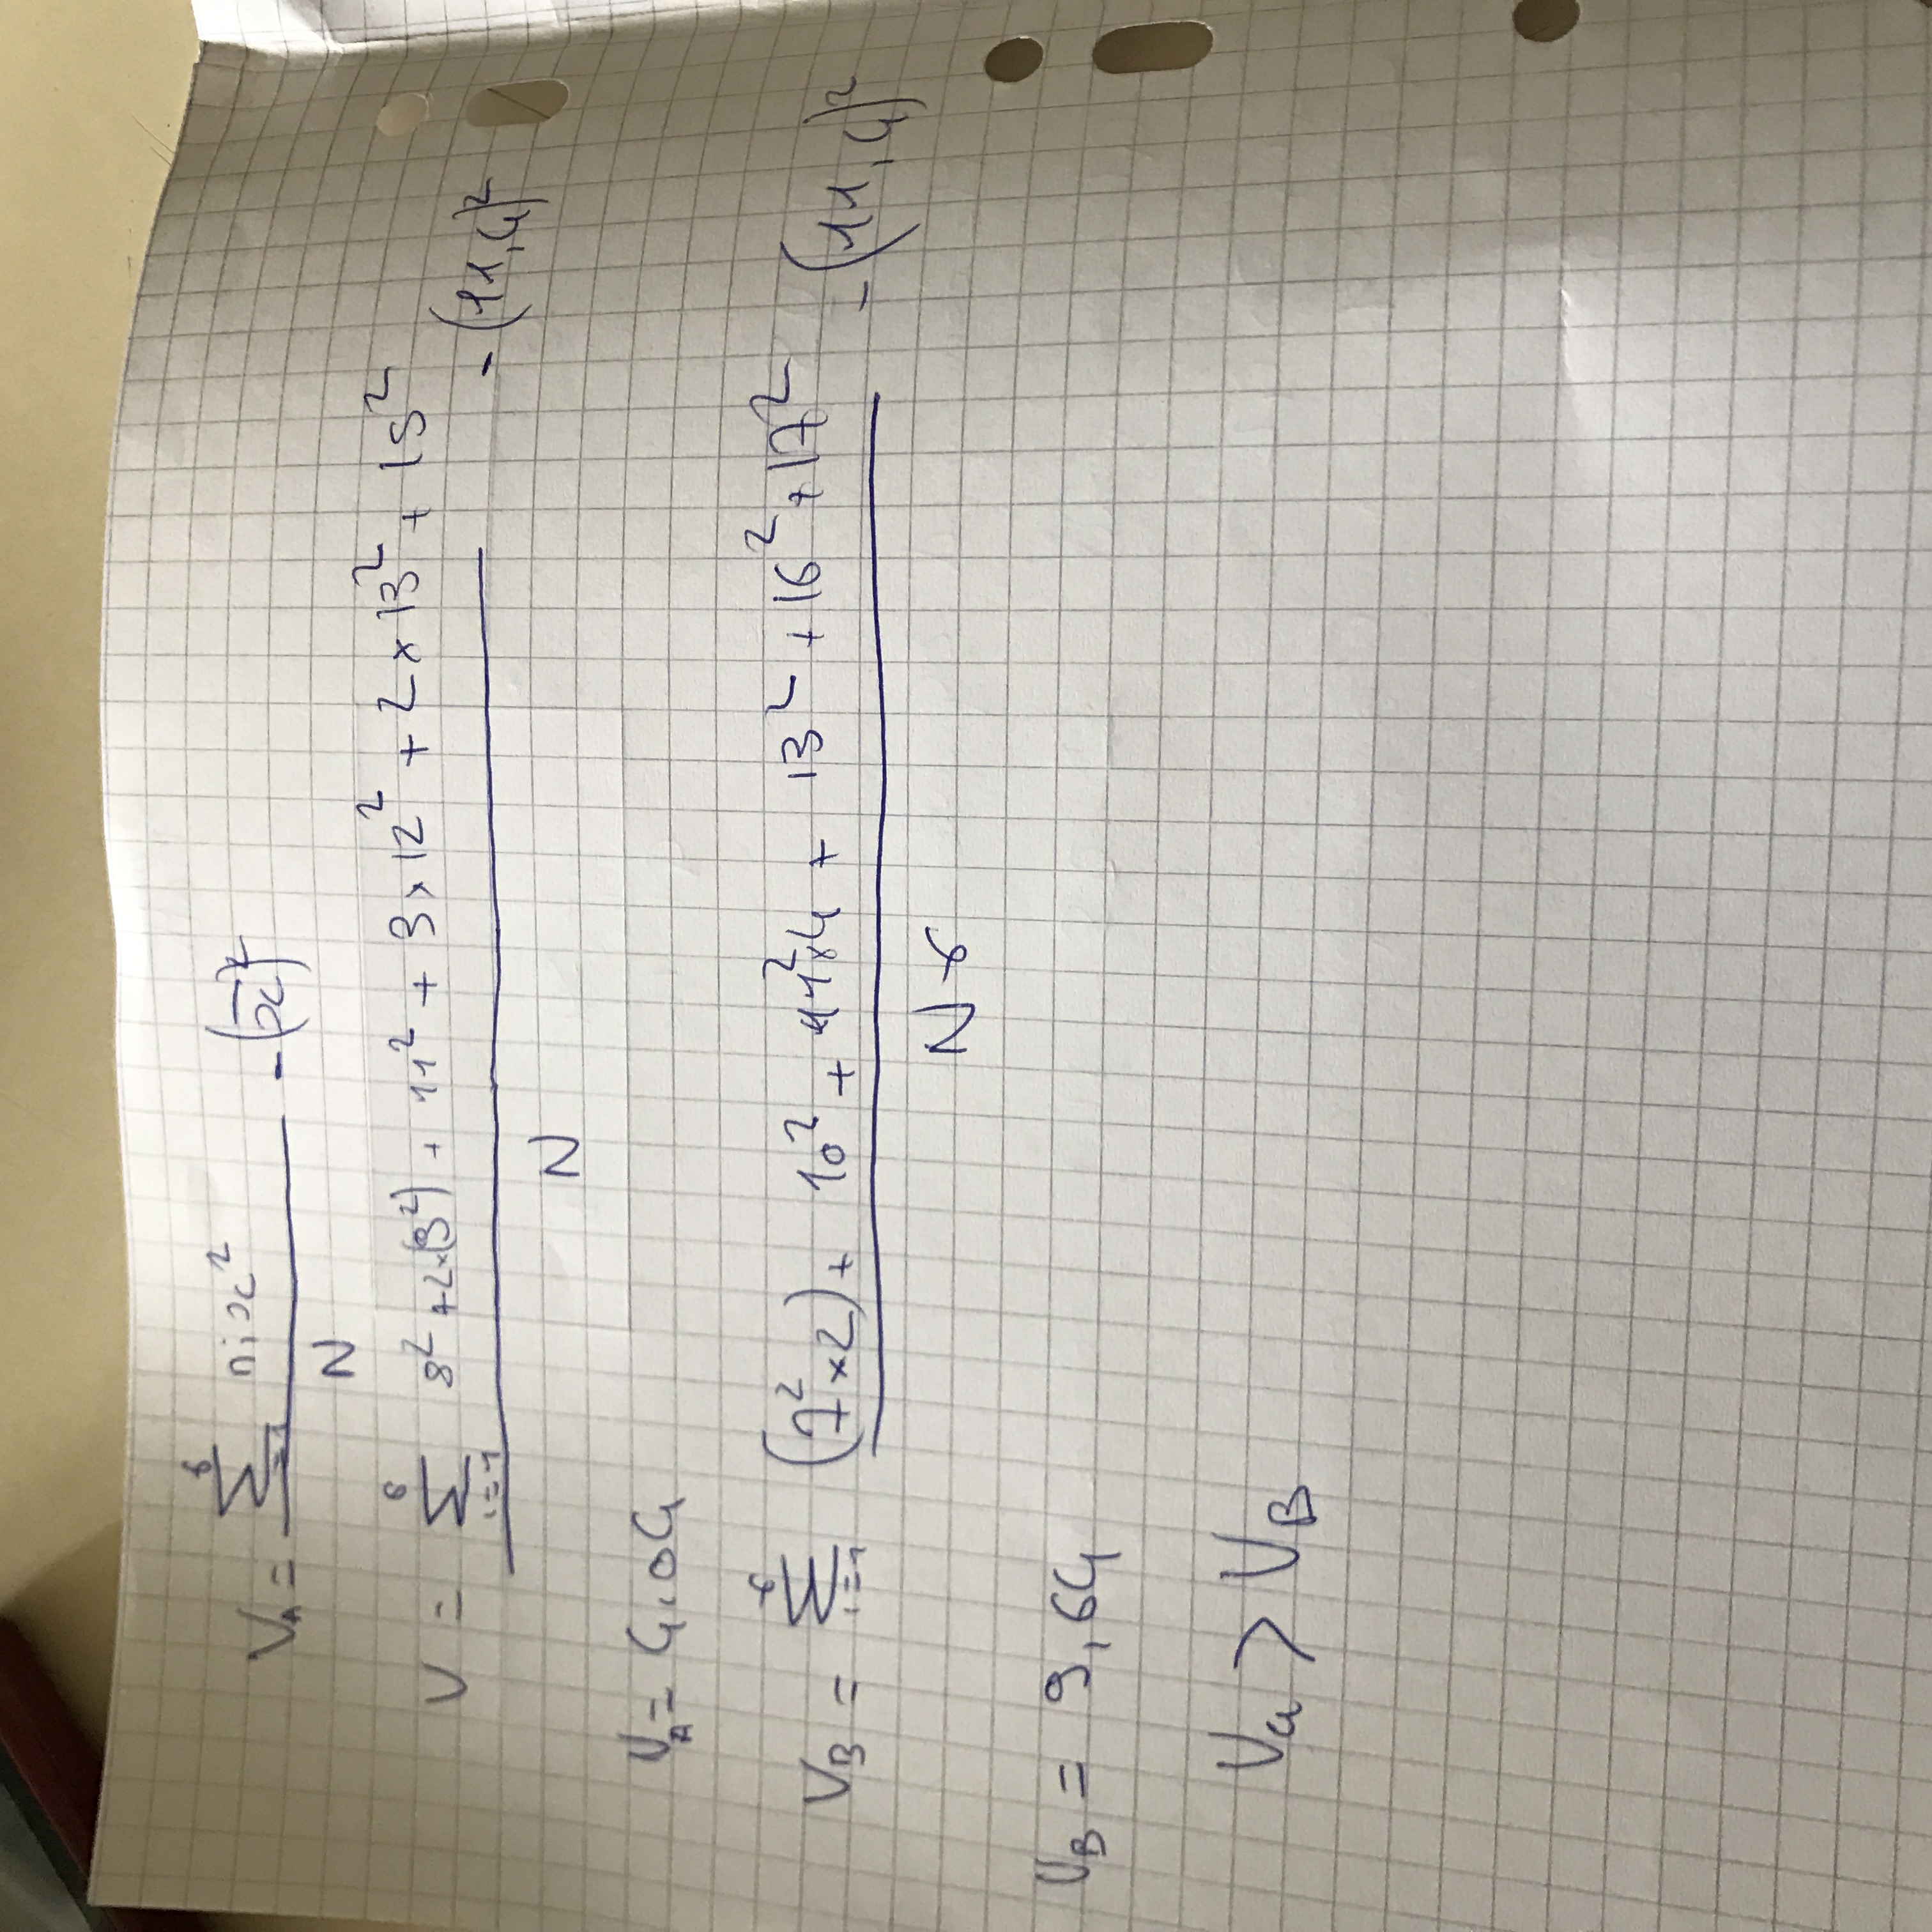 V_A = (∑_{i=1}^{6} n_i x²) / N - (x̄)²
V = (∑_{i=1}^{6} 8² + 2×(9²) + 11² + 3×12² + 2×13² + 15²) / N - (11,4)²
V_A = 4,04
V_B = ∑_{i=1}^{6} ((7²×2) + 10² + 11²×4 + 13² + 16² + 17²) / N - (11,4)²
V_B = 9,64
V_a > V_B